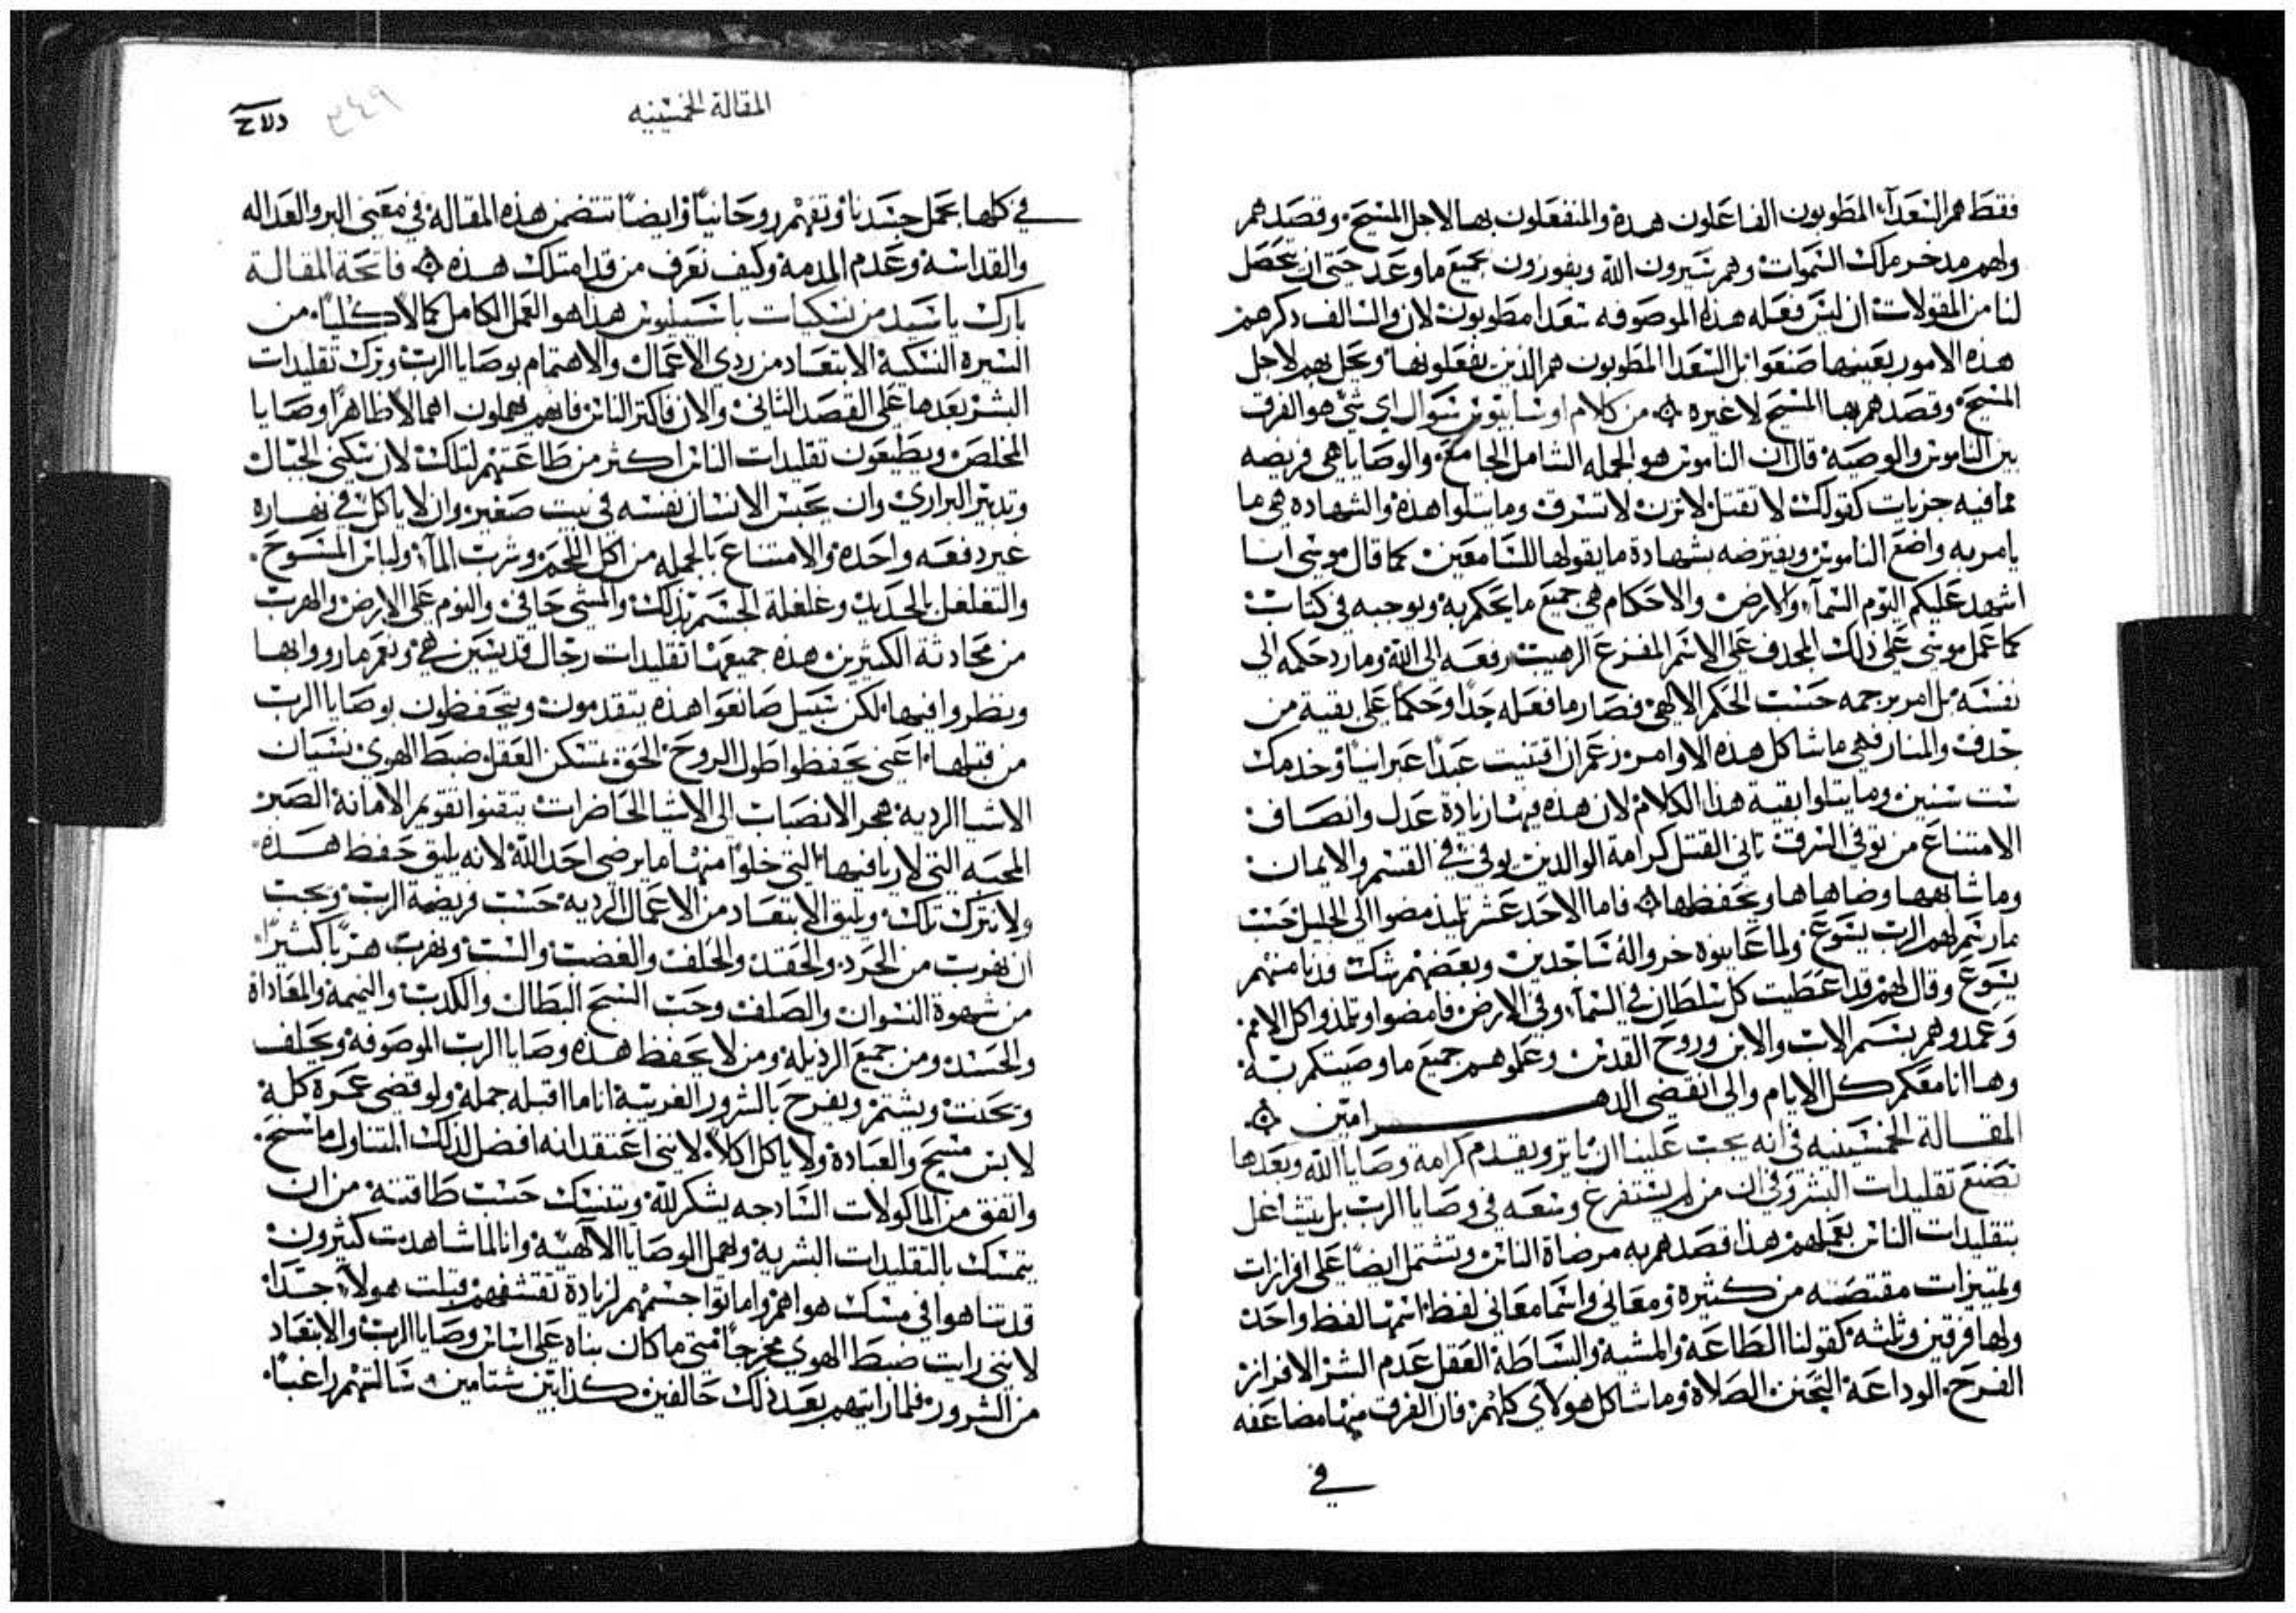 فقط هم السعدآء المطوبون الفاعلون هذه والمنفعلون بها لاجل المسيح وقصدهم
ولهم مدخر ملك السموات وهم سيرون الله ويفوزون بجميع ما وعد حتى ان يحصل
لنا من المقولات ان ليس فعله هذه الموصوفه سعدا مطوبون لان والسالف ذكرهم
هذه الامور بعينها صنعوا بل السعدا المطوبون هم الذين يفعلونها ويحل بهم لاجل
المسيح وقصدهم بها المسيح لا غيره من كلام اوسابيوس سوال اي شي هو الفرق
بين الناموس والوصيه قال ان الناموس هو الجمله الشامل الجامع والوصايا هي فريضه
مما فيه جزيات كقولك لا تقتل لا تزن لا تسرق وما يتلوا هذه والشهاده هي ما
يامر به واضع الناموس ويفترضه بشهادة ما يقولها للسامعين كما قال موسى انا
اشهد عليكم اليوم السمآء والارض والاحكام هي جميع ما يحكم به ويوجبه في كتاب
كما عمل موسى على ذلك المجدف على الاسم المفزع الرهيب رفعه الى الله وما رد حكمه الى
نفسه بل امر برجمه حسب الحكم الالهي فصار ما فعله جدا وحكما على بقية من
جدف والمنار فهي ما شاكل هذه الاوامر زعم ان اقتنيت عبدا عبرانيا وخدمك
ست سنين وما يتلوا بقية هذا الكلام لان هذه فيها زيادة عدل وانصاف
الامتناع من توقى السرق تاني القتل كرامة الوالدين يوفي في القسم والايمان
وما شابهها وضاهاها ويحفظها فاما الاحد عشر تلميذ مضوا الى الجليل حسب
ما رسم لهم الرب يسوع ولما عاينوه خروا له ساجدين وبعضهم شك فدنا منهم
يسوع وقال لهم قد اعطيت كل سلطان في السمآء وفي الارض فامضوا وتلمذوا كل الامم
وعمدوهم بسم الاب والابن وروح القدس وعلموهم جميع ما وصيتكم به
وها انا معكم كل الايام والى انقضى الدهر امين
المقالة الخمسينيه في انه يجب علينا ان ناثر ونقدم كرامة وصايا الله وبعدها
نصنع تقليدات البشر وفي ان من لم يستفرغ وسعه في وصايا الرب بل يتشاغل
بتقليدات الناس بعملهم هذا قصدهم به مرضاة الناس وتشتمل ايضا على افرازات
وتمييزات مقتضبه من كثيره ومعاني واسما معاني لفظ اسمها لفظ واحد
ولها فرقين وثلثه كقولنا الطاعة والمشية والبساطة العقل عدم الشر الافراز
الفرح الوداعة التحنن الصلاة وما شاكل هولاي كلهم فان الفرق منها مضاعفه
في
المقالة الخمسينيه
٣٤٩
في كلها بحمل جسدنا وتفهم روحانيا وايضا تتضمن هذه المقالة في معنى البر والعداله
والقداسة وعدم المذمة وكيف نعرف من قد امتلك هذه فاتحة المقالة
بارك يا سيد من نسكيات باسيليوس هذا هو العمل الكامل كمالا كليا من
السيره النسكية الابتعاد من ردي الاعمال والاهتمام بوصايا الرب وترك تقليدات
البشر بعدها على القصد الثاني والان فاكثر الناس فانهم يهملون اهمالا ظاهرا وصايا
المخلص ويطيعون تقليدات الناس اكثر من طاعتهم لتلك لان سكنى الجبال
وتدبير البراري وان يحبس الانسان نفسه في بيت صغير وان لا ياكل في نهاره
غير دفعه واحده والامتناع بالجمله من اكل اللحم وشرب المآء ولباس المسوح
والتغلغل بالحديد وغلغلة الجسم بذلك والمشي حافي والنوم على الارض والهرب
من محادثة الكثيرين هذه جميعها تقليدات رجال قديسين هي ونعم ما رووا بها
ونظروا فيها لكن سبيل صانعوا هذه يتقدمون ويتحفظون بوصايا الرب
من قبلها اعني يحفظوا طول الروح الحق تمسكن العقل ضبط الهوى نسيان
الاشيا الرديه هجر الانصباب الى الاشيا الحاضرات يتقنوا تقويم الامانة الصبر
المحبه التي لا ريا فيها التي خلوا منها ما يرضي احد الله لانه يليق حفظ هذه
ولا تترك تلك ويليق الابتعاد من الاعمال الرديه حسب فريضة الرب ويجب
ان نهرب من الحرد والحقد والحلف والغضب والسب ونهرب هربا كثيرا
من شهوة النسوان والصلف وحب السبح البطال والكذب والنميمه والمعاداة
والحسد ومن جميع الرذيله ومن لا يحفظ هذه وصايا الرب الموصوفه ويحلف
ويحنث ويشتم ويفرح بالشرور الغريبة انا ما اقبله جمله ولو قضى عمره كله
لابس مسيح والعبادة ولا ياكل اكلا لانني اعتقد انه افضل لذلك المتناول ما سنح
واتفق من الماكولات السادجه يشكر لله ويتنسك حسب طاقته من ان
يتمسك بالتقليدات البشريه ويهمل الوصايا الآلهيه وانا لما شاهدت كثيرون
قد تناهوا في مسك هواهم واماتوا جسمهم لزيادة تقشفهم قبلت هولآء جدا
لانني رايت ضبط الهوى مخرجا متى ما كان بناه على اساس وصايا الرب والابتعاد
من الشرور فلما رايتهم بعد ذلك حالفين كدابين شتامين سالتهم راغبا